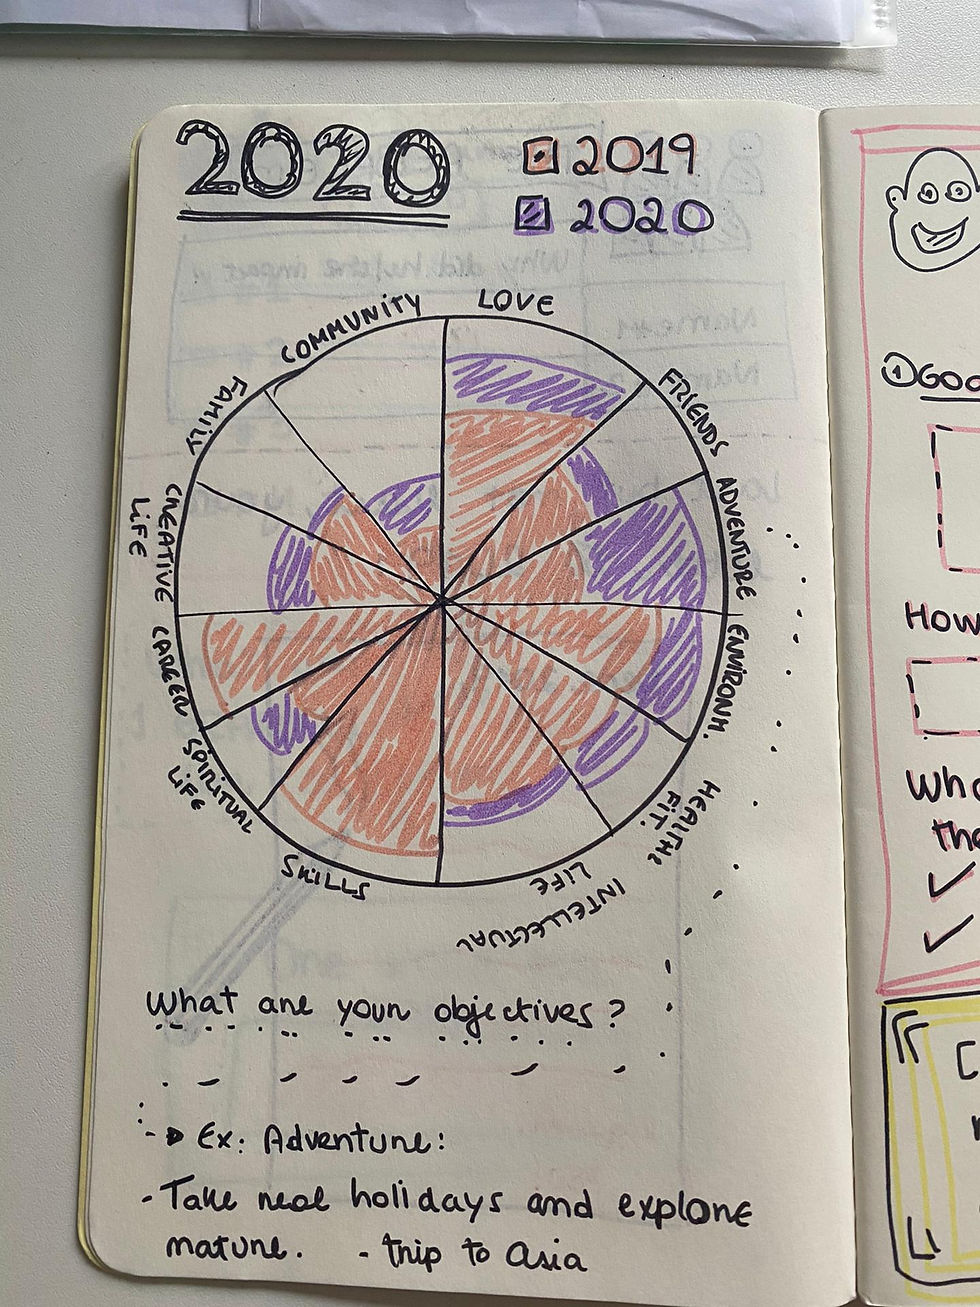 2020
2019
2020
LOVE
FRIENDS
ADVENTURE
ENVIRONM.
HEALTH&
FIT.
INTELLECTUAL
LIFE
SKILLS
SPIRITUAL
LIFE
CAREER
CREATIVE
LIFE
FAMILY
COMMUNITY
What are your objectives?
Ex: Adventure:
- Take real holidays and explore
nature. - trip to Asia
① GOO
How
Who
the